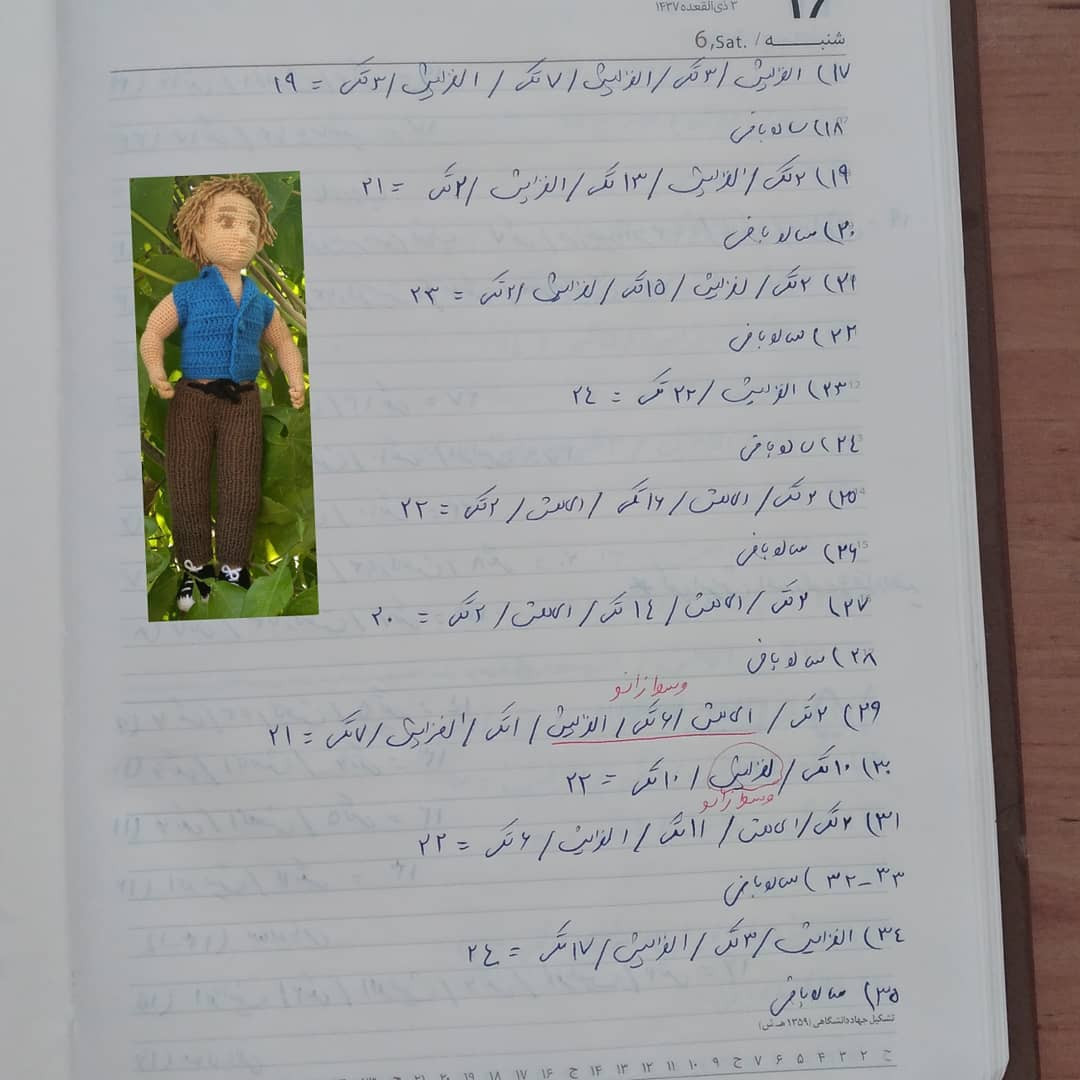 ۳ ذی‌القعده ۱۴۳۷
۱۷
شنبـــــه / 6,Sat.
۱۷) افزایش / ۳ تک / افزایش / ۷ تک / افزایش / ۳ تک = ۱۹
۱۸) ساده بافی
۱۹) ۲ تک / افزایش / ۱۳ تک / افزایش / ۲ تک = ۲۱
۲۰) ساده بافی
۲۱) ۲ تک / افزایش / ۱۵ تک / افزایش / ۲ تک = ۲۳
۲۲) ساده بافی
۲۳) افزایش / ۲۲ تک = ۲٤
۲٤) ساده بافی
۲۵) ۲ تک / کاهش / ۱۶ تک / کاهش / ۲ تک = ۲۲
۲۶) ساده بافی
۲۷) ۲ تک / کاهش / ۱٤ تک / کاهش / ۲ تک = ۲۰
۲۸) ساده بافی
وسط زانو
۲۹) ۲ تک / کاهش / ۶ تک / افزایش / ۱ تک / افزایش / ۷ تک = ۲۱
۳۰) ۱۰ تک / افزایش / ۱۰ تک = ۲۲
وسط زانو
۳۱) ۲ تک / کاهش / ۱۱ تک / افزایش / ۶ تک = ۲۲
۳۲-۳۳) ساده بافی
۳٤) افزایش / ۳ تک / افزایش / ۱۷ تک = ۲٤
۳۵) ساده بافی
تشکیل جهاد دانشگاهی (۱۳۵۹ هـ ش)
ج ۲ ۳ ۴ ۵ ۶ ۷ ج ۹ ۱۰ ۱۱ ۱۲ ۱۳ ۱۴ ج ۱۶ ۱۷ ۱۸ ۱۹ ۲۰ ۲۱ ج